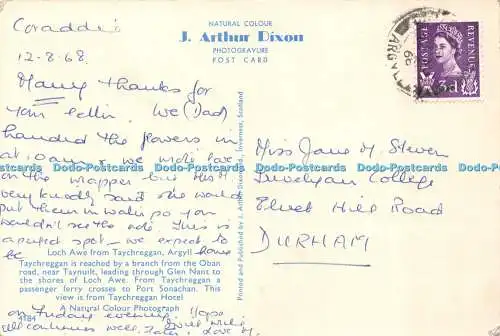 Coraddie
12-8-68
NATURAL COLOUR
J. Arthur Dixon
PHOTOGRAVURE
POST CARD
Many thanks for
your letter. We (Dad)
handed the flowers in
at 10am & we wrote love
on the wrapper but
very kindly said she would
put them in water so you
wouldn't see the note. This is
a perfect spot – we expect to
be home
Loch Awe from Taychreggan, Argyll
Taychreggan is reached by a branch from the Oban
road, near Taynuilt, leading through Glen Nant to
the shores of Loch Awe. From Taychreggan a
passenger ferry crosses to Port Sonachan. This
view is from Taychreggan Hotel
A Natural Colour Photograph
4184
on Friday evening. Hope
all continues well. Love
Printed and Published by J. Arthur Dixon Ltd., Inverness, Scotland
POSTAGE
REVENUE
3d
ARGYLL
Miss Jane M. Steven
Trevelyan College
Elvet Hill Road
DURHAM
Dodo-Postcards Dodo-Postcards Dodo-Postcards Dodo-Postcards Dodo-Postcards